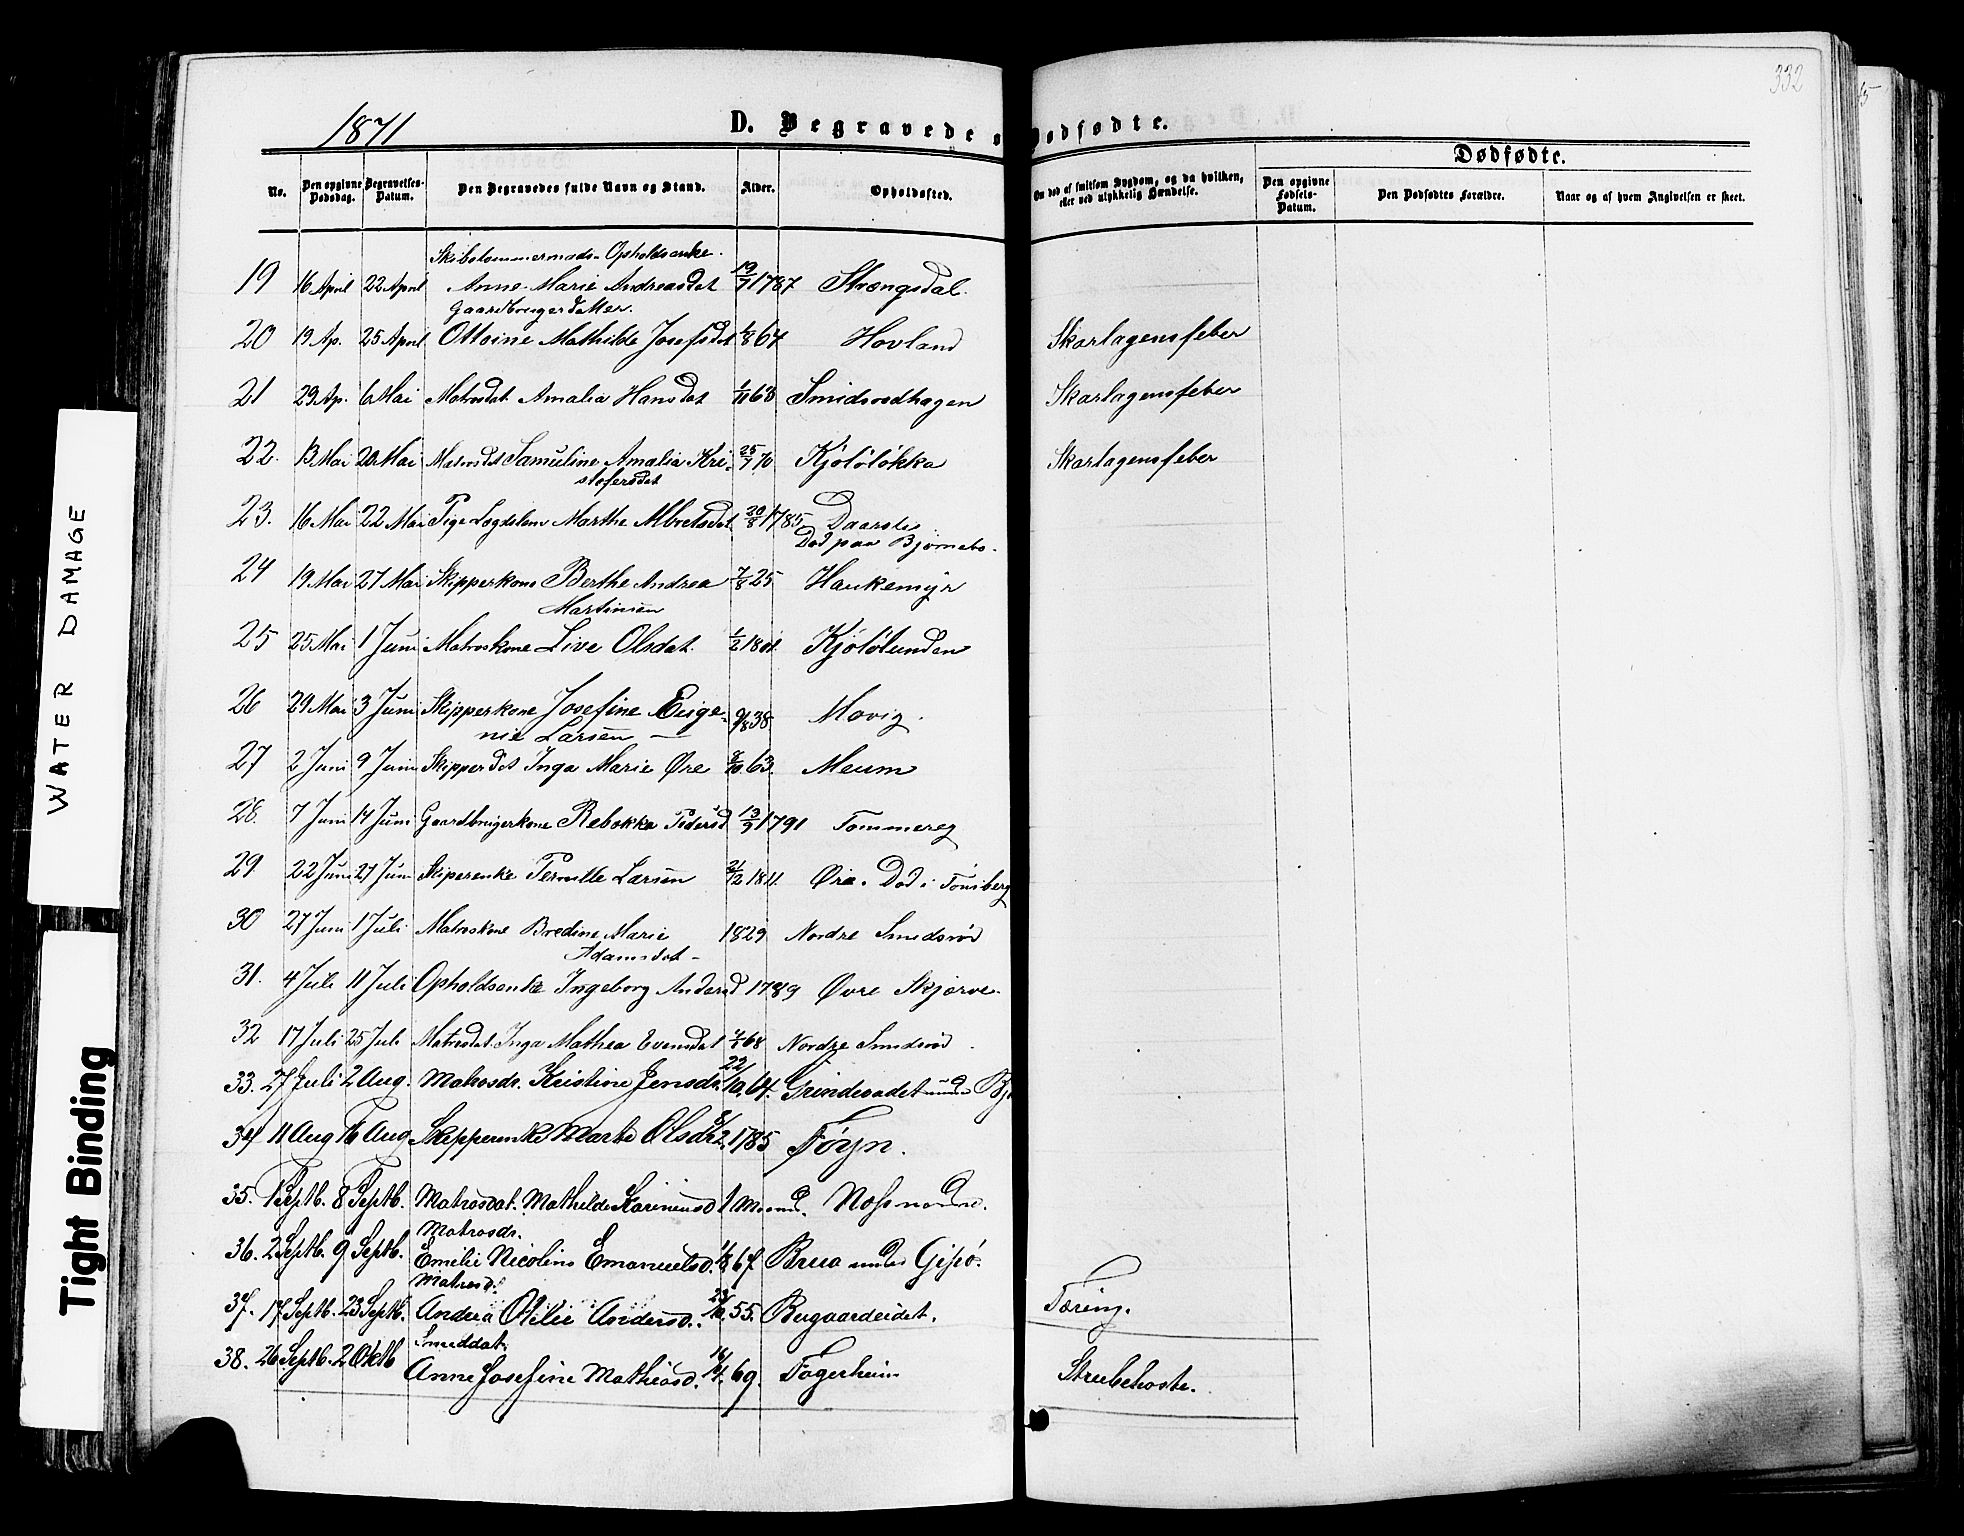 332
5
1871
D. Begravede o Dødfødte.
Dødfødte.
No.
Den opgivne Dødsdag.
Begravelses-Datum.
Den Begravedes fulde Navn og Stand.
Alder.
Opholdssted.
Om død af smitsom Sygdom, og da hvilken, eller ved ulykkelig Hændelse.
Den opgivne Fødsels-Datum.
Den Dødfødtes Forældre.
Naar og af hvem Angivelsen er skeet.
Opholdsenke
19 16 April 22 April Anne Marie Andreasdat 19/7 1787 Strængsdal
Gaardbrugerdatter.
20 19 Ap. 25 April Ottoine Mathilde Josefsdat 1/8 67 Hovland Skarlagensfeber
21 29 Ap. 6 Mai Matrosdat Amalia Hansdat 1/11 68 Smidsrodhagen Skarlagensfeber
22. 13 Mai 20 Mai Matrosdt Samuline Amalia Kri- 25/7 70 Kjølöløkka Skarlagensfeber
stofersdat
23. 16 Mai 22 Mai Pige Lægdslem Marthe Albretsdat 20/8 1785
Død paa Bjørnebo.
24 19 Mai 27 Mai Skipperkone Berthe Andrea 7/8 25 Haukemyr
Martinsen
25 25 Mai 1 Juni Matroskone Live Olsdat. 1/2 1801. Kjølölunden
26 29 Mai 3 Juni Skipperkone Josefine Euge- 9/8 38 Movig.
nie Larsen —
27 2 Juni 9 Juni Skipperdt Inga Marie Øre 8/10 63. Meum
28. 7 Juni 14 Juni Gaardbrugerkone Rebokka Pedersd 13/9 1791 Tommereg
29. 22 Juni 27 Juni Skiperenke Pernille Larsen 2/12 1811. Øre. Død i Tønsberg
30 27 Juni 1 Juli Matroskone Bredine Marie 1829 Nordre Smidsrød
Adamsdat —
31. 4 Juli 11 Juli Opholdsenke Ingeborg Andersd 1789 Øvre Skjærve.
32 17 Juli 25 Juli Matrosdat. Inga Mathea Evensdat 68 Nordre Smidsrød.
33. 27 Juli 2 Aug. Matrosdr. Kristine Jensdr. 22/10. 64. Grindevadet under Bj
34 11 Aug 16 Aug Skipperenke Marte Olsdr. 8/2. 1785 Føyn.
35. 1 Septb. 8 Septb. Matrosdat. Mathilde Karinensd 1 Maaned. Næss nordre.
Matrosdr.
36. 2 Septb. 9 Septb. Emilie Nicoline Emanuelsd. 1/8 67 Brua under Gipö.
Matrosd.
37. 17 Septb. 23 Septb. Andrea Otilie Andersd. 23/10. 55. Bugaardeidet. Tæring.
Smeddat.
38. 26 Septb. 2 Oktb Anne Josefine Mathiasd. 69. Fagerheim Strubehoste.
WATER DAMAGE
Tight Binding